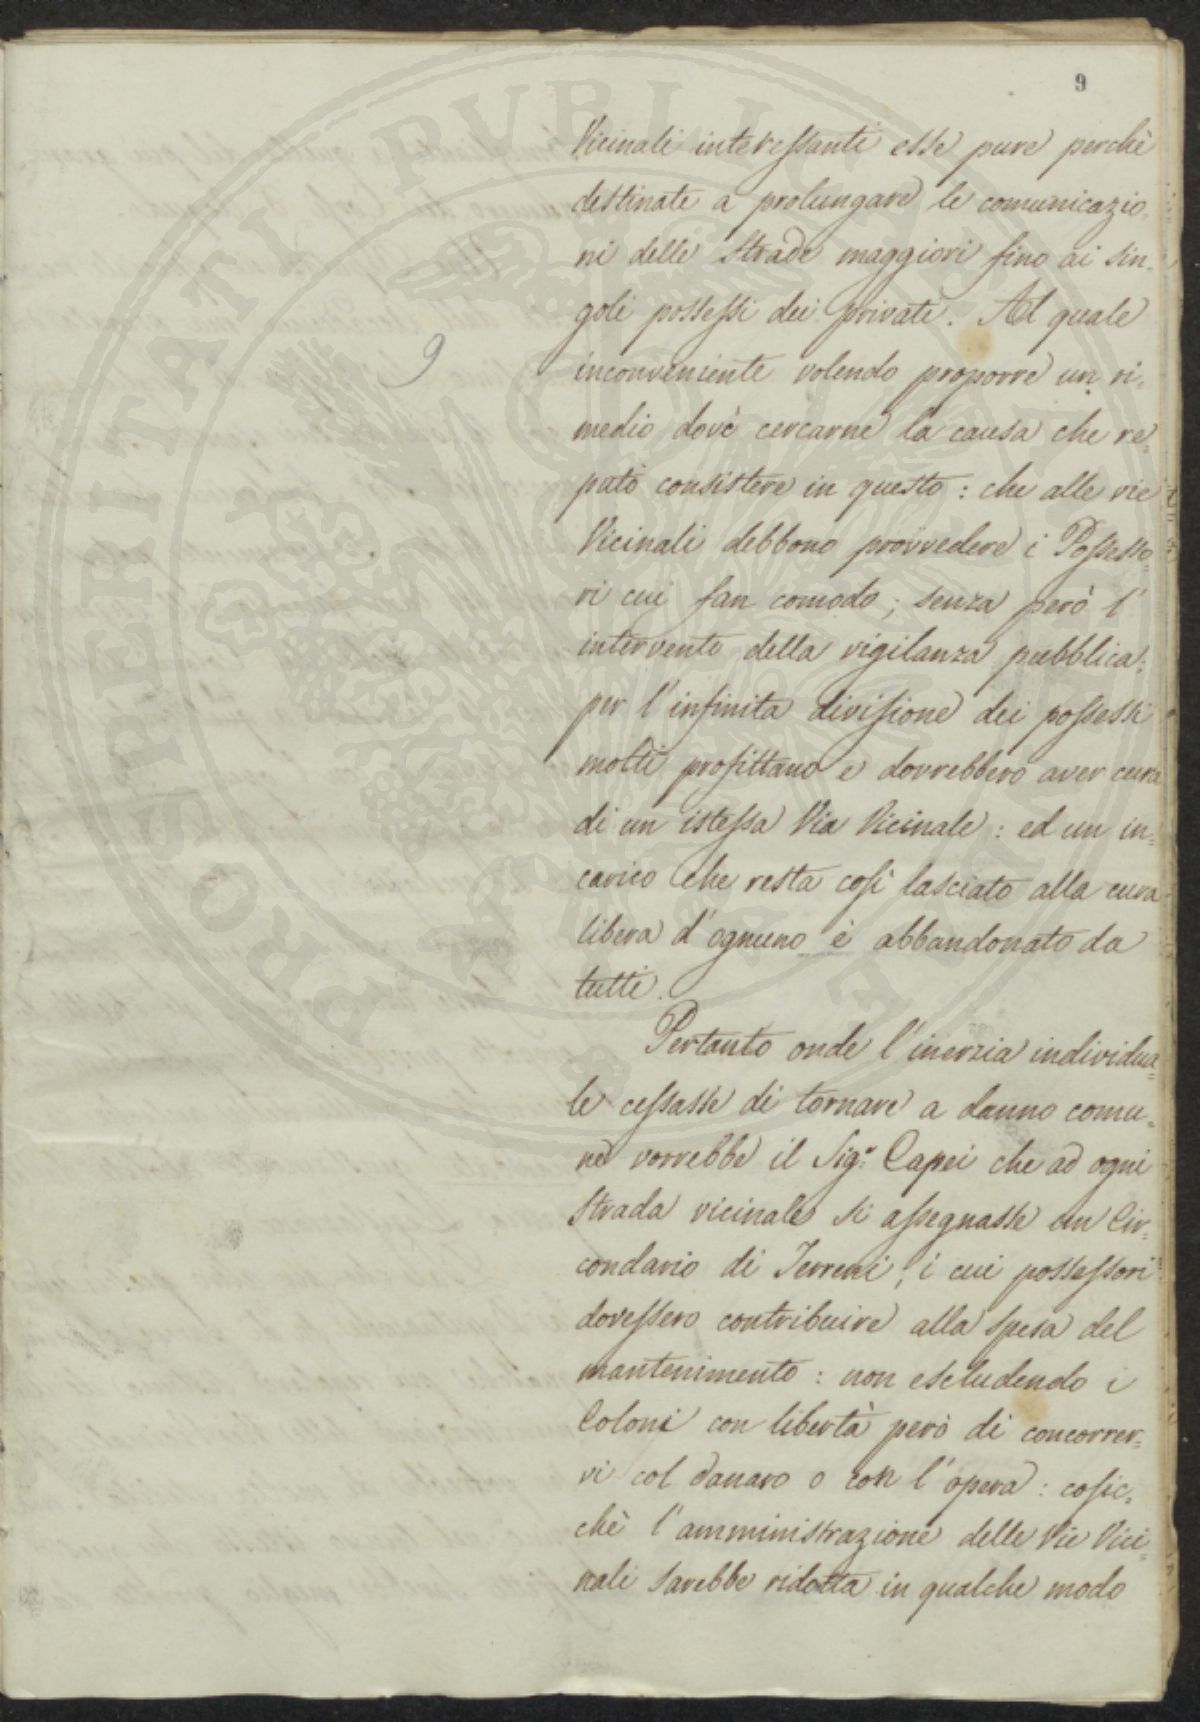 9
Vicinali interessanti esse pure perchè
destinate a prolungare le comunicazio=
ni delle Strade maggiori fino ai sin=
goli possessi dei privati. Al quale
9
inconveniente volendo proporre un ri=
medio dovè cercarne la causa che re=
putò consistere in questo: che alle vie
Vicinali debbono provvedere i Possesso=
ri cui fan comodo; senza però l'
intervento della vigilanza pubblica:
per l'infinita divisione dei possessi
molti profittano e dovrebbero aver cura
di un istessa Via Vicinale: ed un in=
carico che resta così lasciato alla cura
libera d'ognuno è abbandonato da
tutti.
Pertanto onde l'inerzia individua=
le cessasse di tornare a danno comu=
ne vorrebbe il Sig.r Capei che ad ogni
Strada vicinale si assegnasse un Cir=
condario di Terreni, i cui possessori
dovessero contribuire alla spesa del
mantenimento: non escludendo i
Coloni con libertà però di concorrer=
vi col danaro o con l'opera: cosic=
chè l'amministrazione delle Vie Vici=
nali sarebbe ridotta in qualche modo
PROSPERITATI PUBLICAE